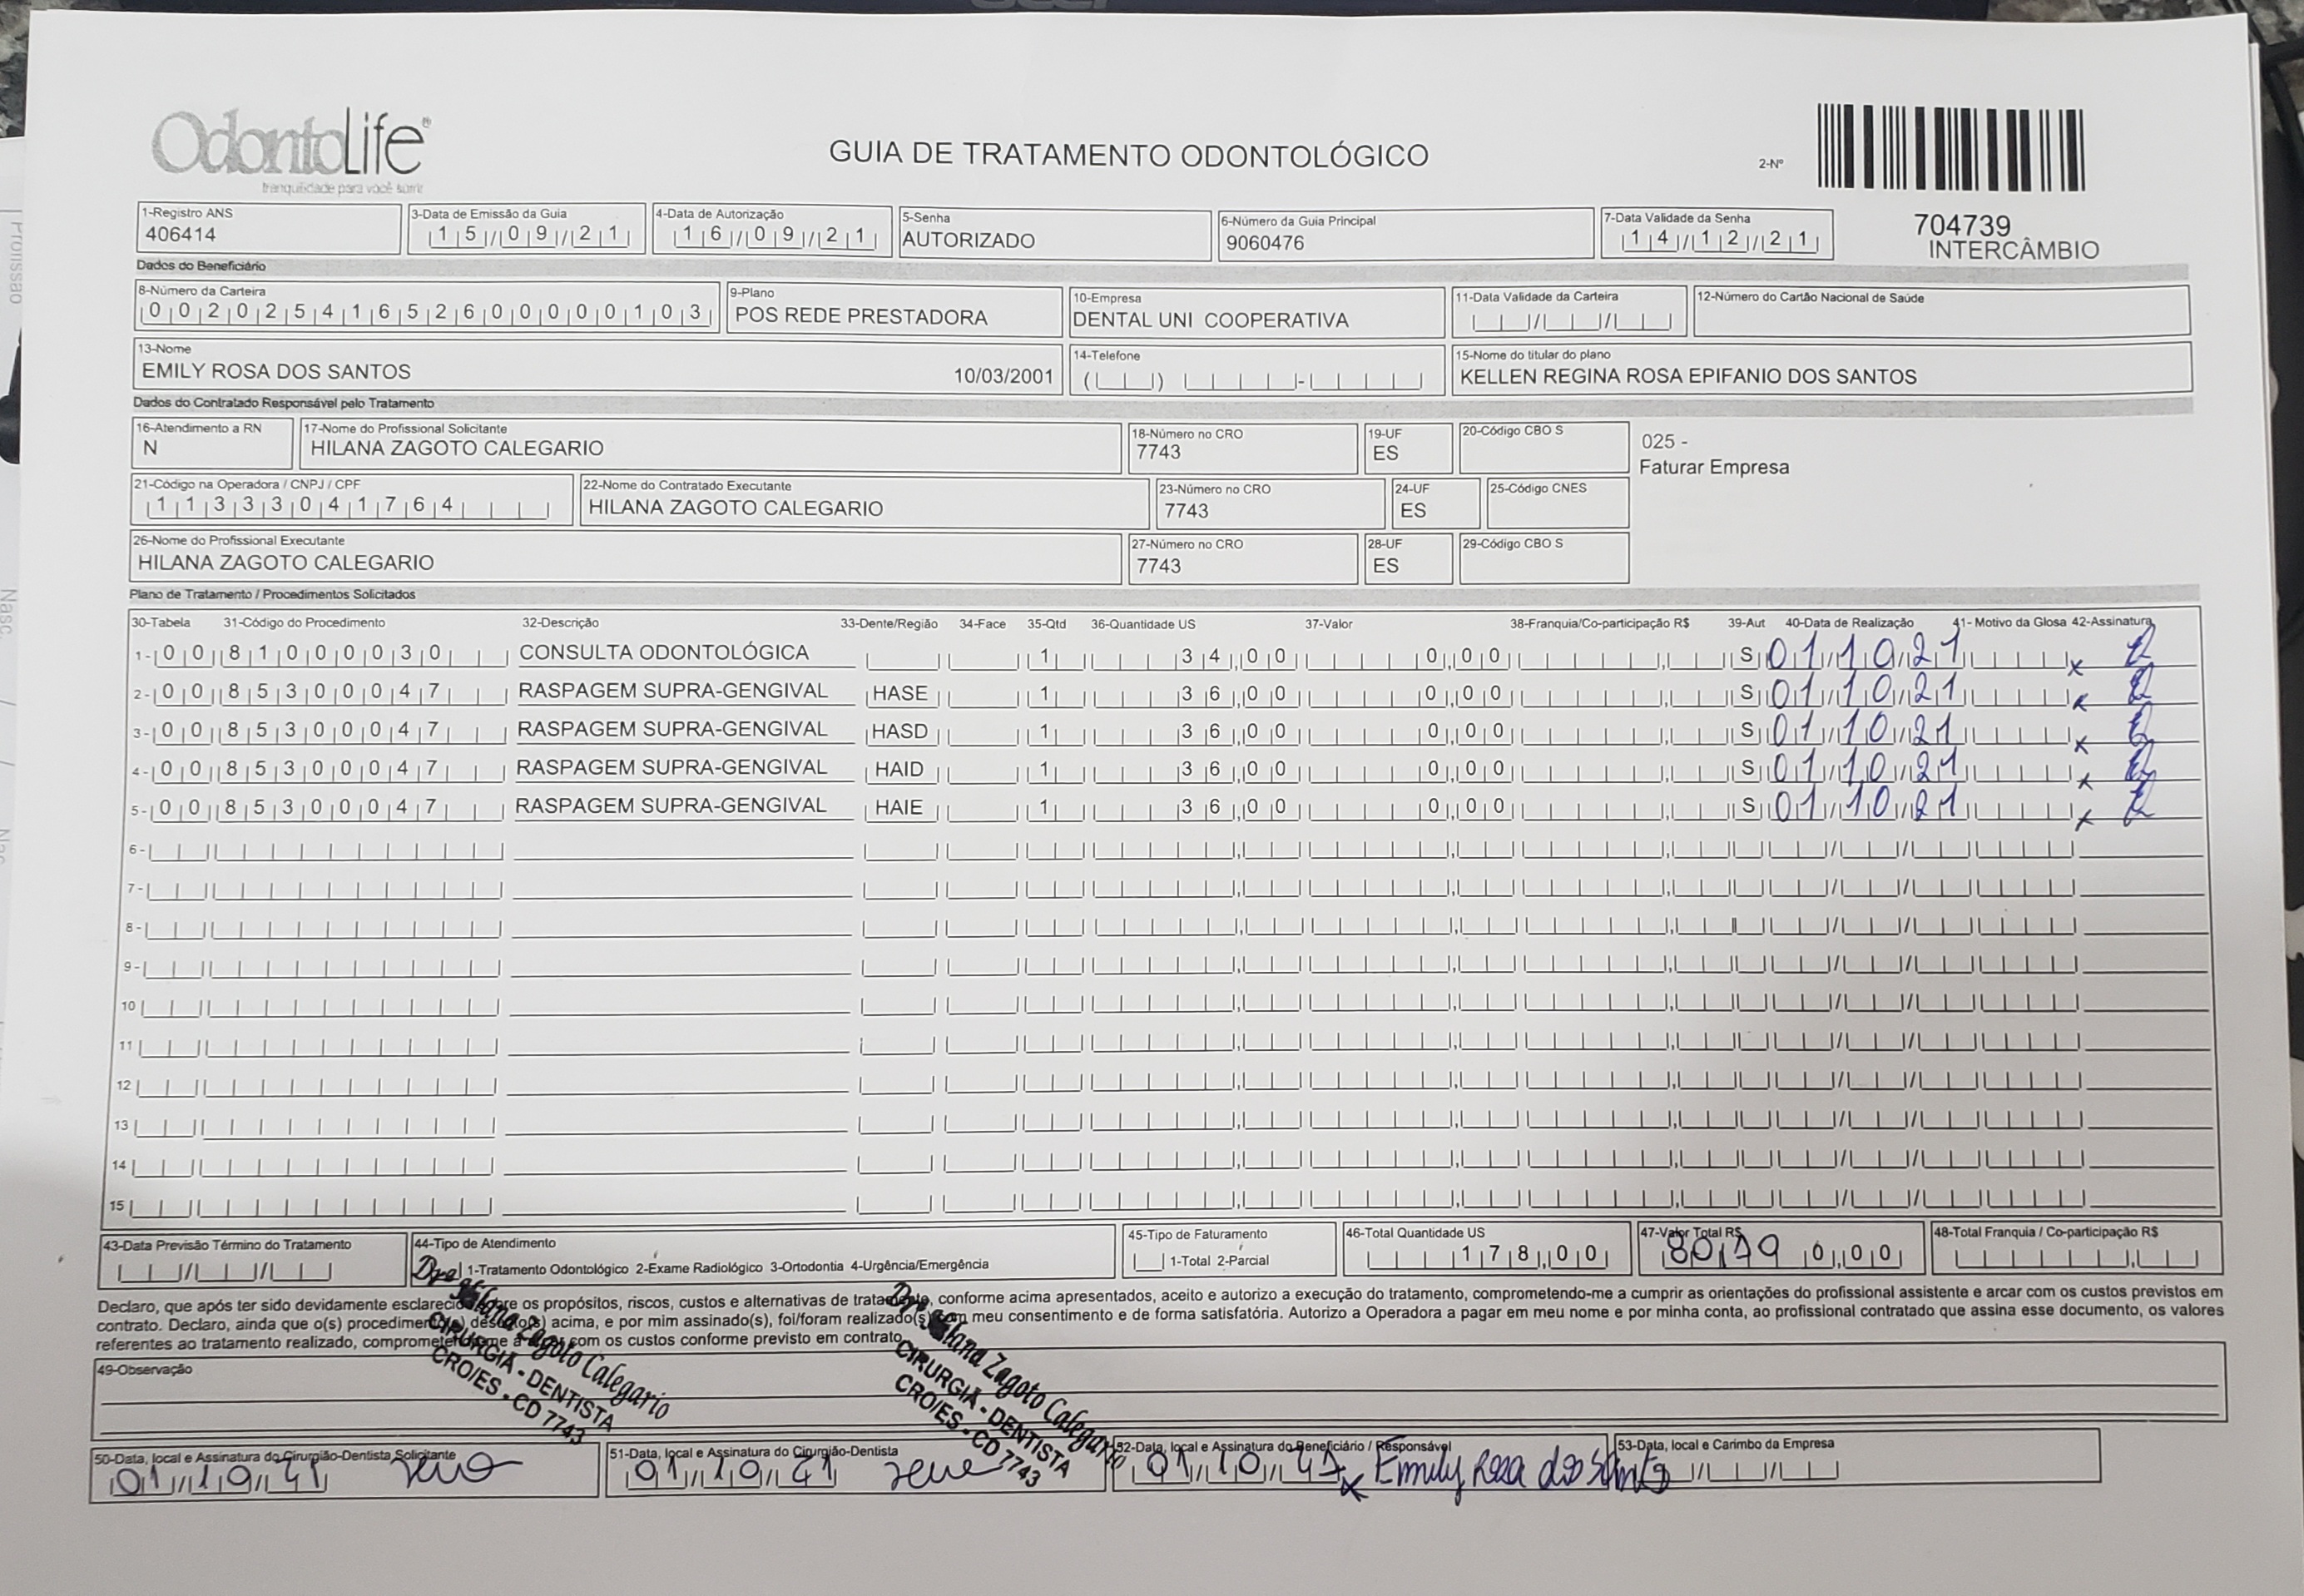 acer
OdontoLife®
tranquilidade para você sorrir
GUIA DE TRATAMENTO ODONTOLÓGICO
2-Nº
704739
INTERCÂMBIO
1-Registro ANS
406414
3-Data de Emissão da Guia
15/09/21
4-Data de Autorização
16/09/21
5-Senha
AUTORIZADO
6-Número da Guia Principal
9060476
7-Data Validade da Senha
14/12/21
Dados do Beneficiário
8-Número da Carteira
00202541652600000103
9-Plano
POS REDE PRESTADORA
10-Empresa
DENTAL UNI COOPERATIVA
11-Data Validade da Carteira
12-Número do Cartão Nacional de Saúde
13-Nome
EMILY ROSA DOS SANTOS 10/03/2001
14-Telefone
15-Nome do titular do plano
KELLEN REGINA ROSA EPIFANIO DOS SANTOS
Dados do Contratado Responsável pelo Tratamento
16-Atendimento a RN
N
17-Nome do Profissional Solicitante
HILANA ZAGOTO CALEGARIO
18-Número no CRO
7743
19-UF
ES
20-Código CBO S
025 -
Faturar Empresa
21-Código na Operadora / CNPJ / CPF
11333041764
22-Nome do Contratado Executante
HILANA ZAGOTO CALEGARIO
23-Número no CRO
7743
24-UF
ES
25-Código CNES
26-Nome do Profissional Executante
HILANA ZAGOTO CALEGARIO
27-Número no CRO
7743
28-UF
ES
29-Código CBO S
Plano de Tratamento / Procedimentos Solicitados
30-Tabela 31-Código do Procedimento 32-Descrição 33-Dente/Região 34-Face 35-Qtd 36-Quantidade US 37-Valor 38-Franquia/Co-participação R$ 39-Aut 40-Data de Realização 41- Motivo da Glosa 42-Assinatura
1- 00 81000030 CONSULTA ODONTOLÓGICA 1 34,00 0,00 S 01/10/21 x
2- 00 85300047 RASPAGEM SUPRA-GENGIVAL HASE 1 36,00 0,00 S 01/10/21 x
3- 00 85300047 RASPAGEM SUPRA-GENGIVAL HASD 1 36,00 0,00 S 01/10/21 x
4- 00 85300047 RASPAGEM SUPRA-GENGIVAL HAID 1 36,00 0,00 S 01/10/21 x
5- 00 85300047 RASPAGEM SUPRA-GENGIVAL HAIE 1 36,00 0,00 S 01/10/21 x
6-
7-
8-
9-
10
11
12
13
14
15
43-Data Previsão Término do Tratamento
44-Tipo de Atendimento
1-Tratamento Odontológico 2-Exame Radiológico 3-Ortodontia 4-Urgência/Emergência
45-Tipo de Faturamento
1-Total 2-Parcial
46-Total Quantidade US
178,00
47-Valor Total R$
80,19 0,00
48-Total Franquia / Co-participação R$
Declaro, que após ter sido devidamente esclarecido sobre os propósitos, riscos, custos e alternativas de tratamento, conforme acima apresentados, aceito e autorizo a execução do tratamento, comprometendo-me a cumprir as orientações do profissional assistente e arcar com os custos previstos em
contrato. Declaro, ainda que o(s) procedimento(s) descrito(s) acima, e por mim assinado(s), foi/foram realizado(s) com meu consentimento e de forma satisfatória. Autorizo a Operadora a pagar em meu nome e por minha conta, ao profissional contratado que assina esse documento, os valores
referentes ao tratamento realizado, comprometendo-me a arcar com os custos conforme previsto em contrato.
Dra. Hilana Zagoto Calegario
CIRURGIÃ - DENTISTA
CRO/ES - CD 7743
Dra. Hilana Zagoto Calegario
CIRURGIÃ - DENTISTA
CRO/ES - CD 7743
49-Observação
50-Data, local e Assinatura do Cirurgião-Dentista Solicitante
01/10/21
51-Data, local e Assinatura do Cirurgião-Dentista
01/10/21
52-Data, local e Assinatura do Beneficiário / Responsável
01/10/21 x Emily Rosa dos Santos
53-Data, local e Carimbo da Empresa
Profissão
Nasc.